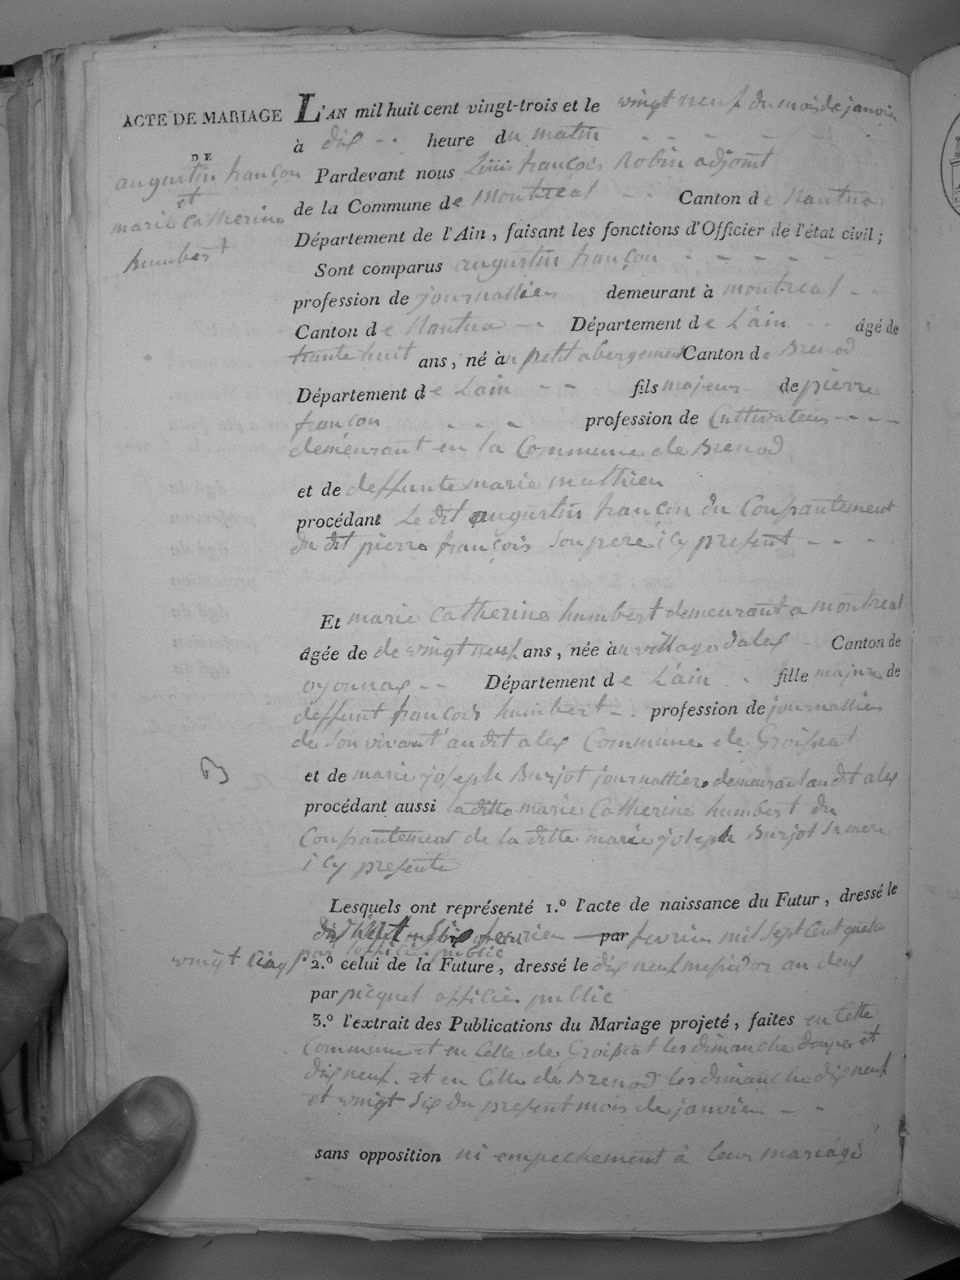 ACTE DE MARIAGE
DE
augustin françon
et
marie catherine
humbert
L'AN mil huit cent vingt-trois et le vingt neuf du mois de janvier
à dix -- heure du matin
Pardevant nous Louis françois Robin adjoint
de la Commune de Montreal -- Canton de Nantua
Département de l'Ain, faisant les fonctions d'Officier de l'état civil;
Sont comparus augustin françon
profession de journallier demeurant à montreal --
Canton de Nantua -- Département de L'ain -- âgé de
trante huit ans, né à petit abergement Canton de Brenod
Département de Lain -- fils majeur de pierre
françon profession de Cultivateur
demeurant en la Commune de Brenod
et de deffunte marie mathieu
procédant Le dit augustin françon du Consantement
du dit pierre françois son pere icy present
Et marie Catherine humbert demeurant a montreal
âgée de de vingt neuf ans, née à village dalex - Canton de
oyonnax -- Département de L'ain - fille majure de
deffunt françois humbert -- profession de journallier
de son vivant audit alex Commune de Groissiat
et de marie joseph Burjot journalliere demeurant audit alex
procédant aussi laditte marie Catherine humbert du
Consantement de la ditte marie joseph Burjot sa mere
icy presente
Lesquels ont représenté 1.º l'acte de naissance du Futur, dressé le
dix huit fevrier par fevrier mil sept Cent quatre
vingt Cinq par officier public
2.º celui de la Future, dressé le dix neuf messidor an deux
par picquet officier public
3.º l'extrait des Publications du Mariage projeté, faites en Cette
Commune et en Celle de Groissiat les dimanche douze et
dix neuf. et en Celle de Brenod les dimanche dix neuf
et vingt six du present mois de janvier - -
sans opposition ni empechement à leur mariage